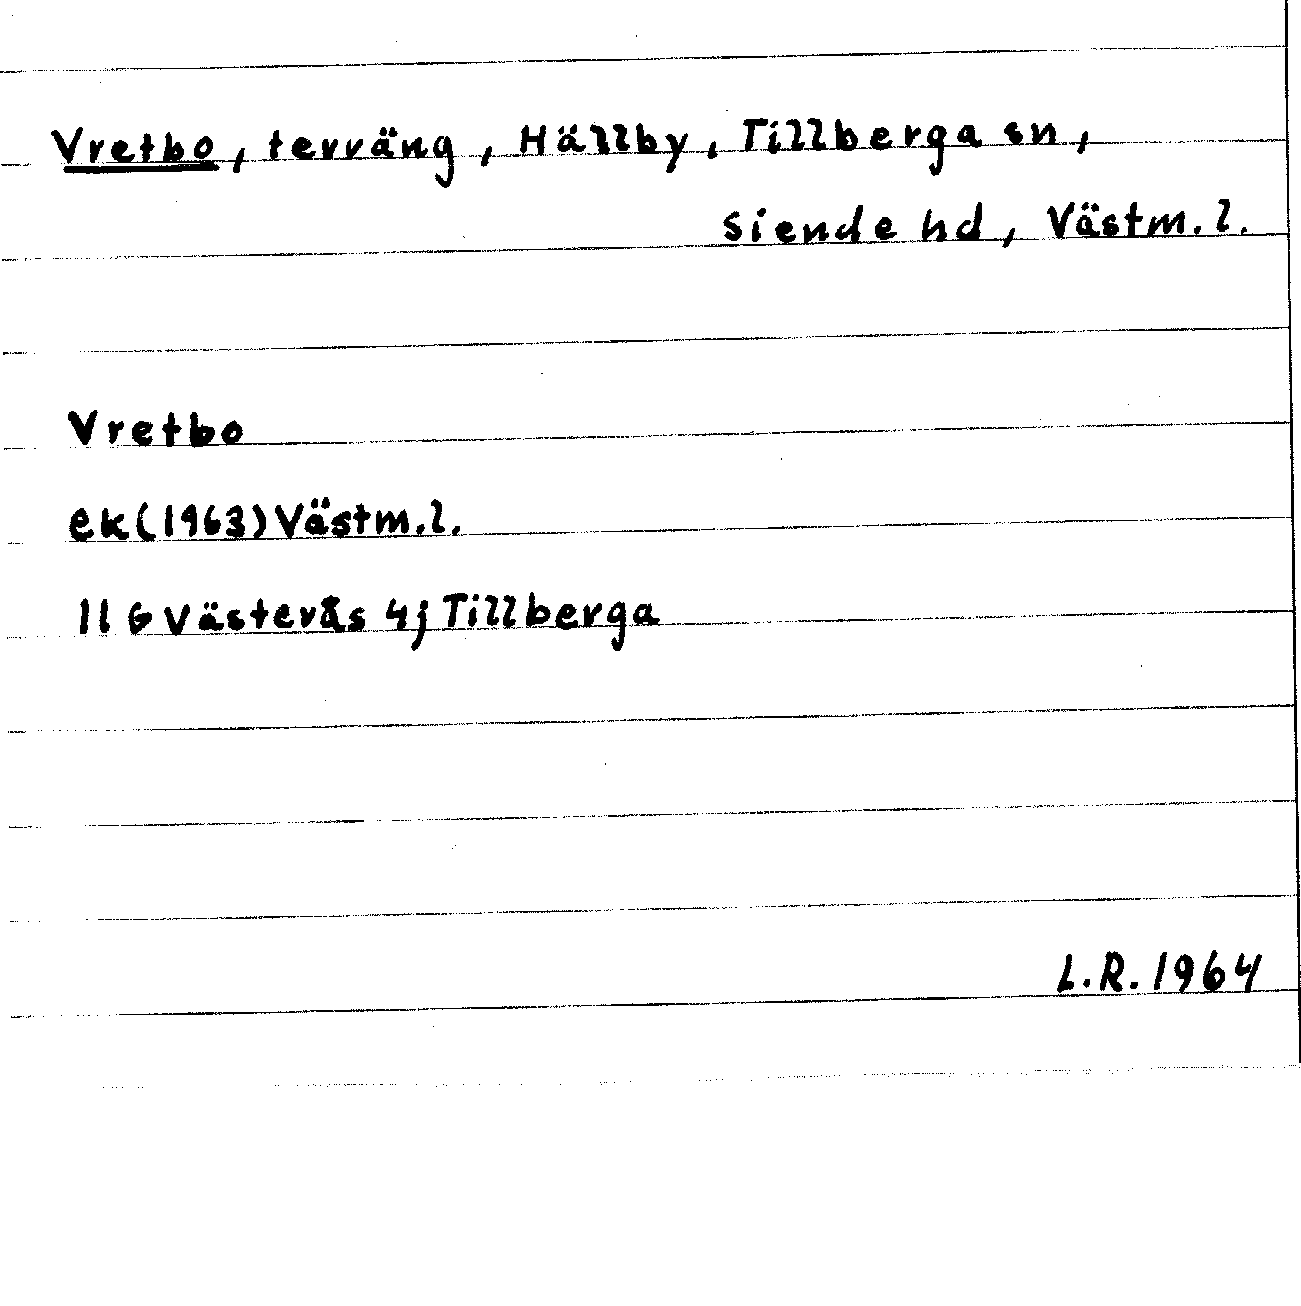 Vretbo, terräng, Hällby, Tillberga sn,
Siende hd, Västm. l.
Vretbo
ek(1963) Västm.l.
11 G Västerås 4j Tillberga
L.R. 1964